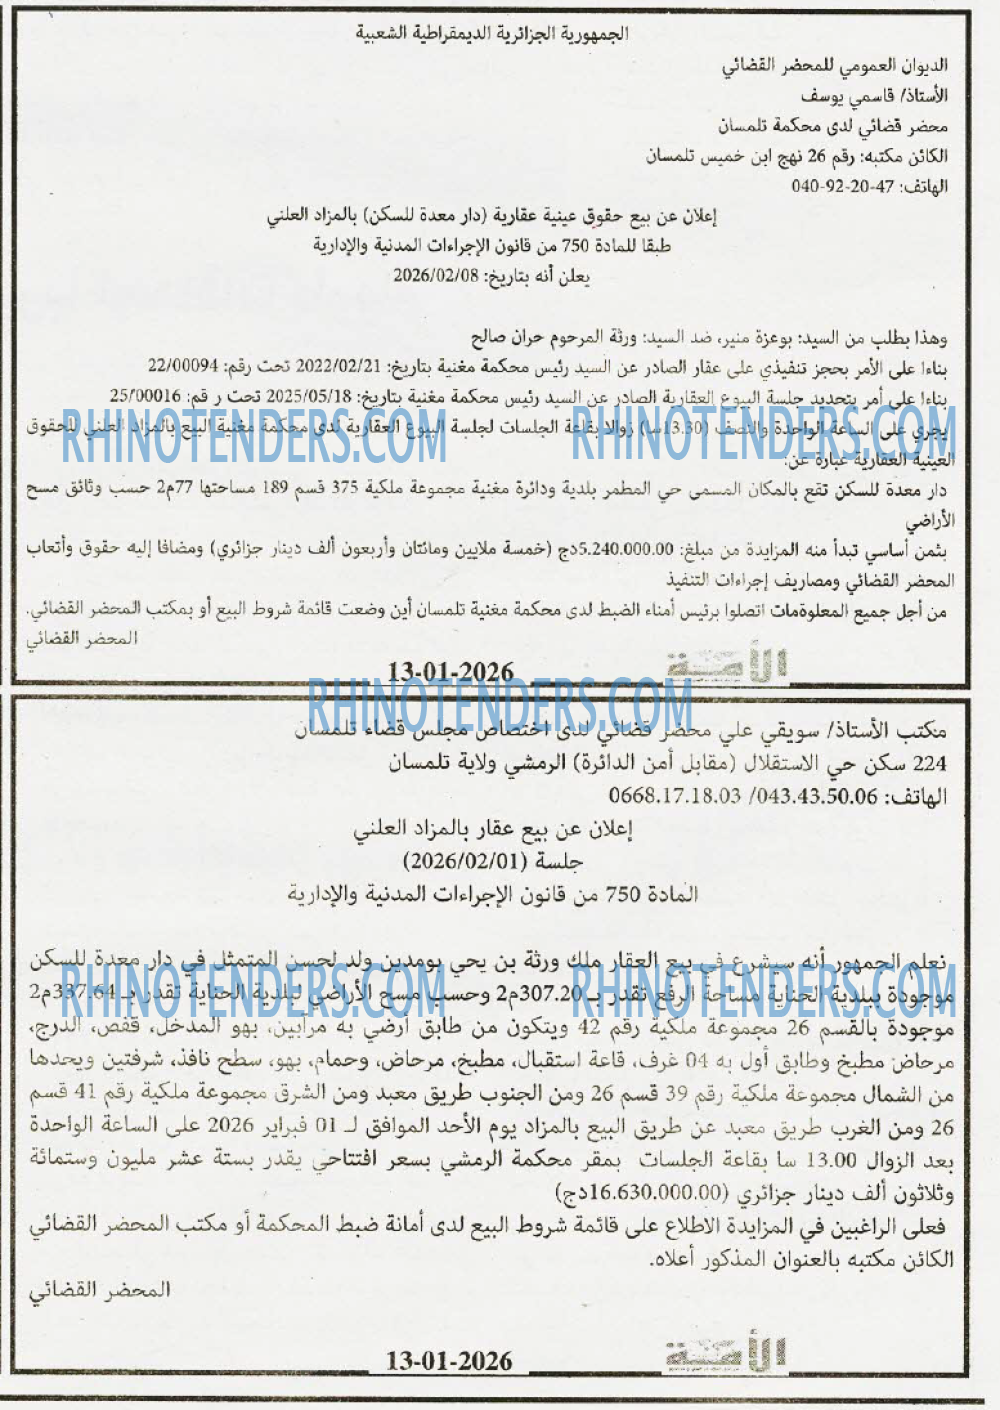 الجمهورية الجزائرية الديمقراطية الشعبية
الديوان العمومي للمحضر القضائي
الأستاذ/ قاسمي يوسف
محضر قضائي لدى محكمة تلمسان
الكائن مكتبه: رقم 26 نهج ابن خميس تلمسان
الهاتف: 47-20-92-040
إعلان عن بيع حقوق عينية عقارية (دار معدة للسكن) بالمزاد العلني
طبقا للمادة 750 من قانون الإجراءات المدنية والإدارية
يعلن أنه بتاريخ: 2026/02/08
وهذا بطلب من السيد: بوعزة منير، ضد السيد: ورثة المرحوم حران صالح
بناءا على الأمر بحجز تنفيذي على عقار الصادر عن السيد رئيس محكمة مغنية بتاريخ: 2022/02/21 تحت رقم: 22/00094
بناءا على أمر بتحديد جلسة البيوع العقارية الصادر عن السيد رئيس محكمة مغنية بتاريخ: 2025/05/18 تحت ر قم: 25/00016
RHINOTENDERS.COM RHINOTENDERS.COM
يجري على الساعة الواحدة والنصف (13.30سا) زوالا بقاعة الجلسات لجلسة البيوع العقارية لدى محكمة مغنية البيع بالمزاد العلني للحقوق
العينية العقارية عبارة عن:
دار معدة للسكن تقع بالمكان المسمى حي المطمر بلدية ودائرة مغنية مجموعة ملكية 375 قسم 189 مساحتها 77م2 حسب وثائق مسح
الأراضي
بثمن أساسي تبدأ منه المزايدة من مبلغ: 5.240.000.00دج (خمسة ملايين ومائتان وأربعون ألف دينار جزائري) ومضافا إليه حقوق وأتعاب
المحضر القضائي ومصاريف إجراءات التنفيذ
من أجل جميع المعلومات اتصلوا برئيس أمناء الضبط لدى محكمة مغنية تلمسان أين وضعت قائمة شروط البيع أو بمكتب المحضر القضائي.
المحضر القضائي
الأمة
13-01-2026
RHINOTENDERS.COM
مكتب الأستاذ/ سويقي علي محضر قضائي لدى اختصاص مجلس قضاء تلمسان
224 سكن حي الاستقلال (مقابل أمن الدائرة) الرمشي ولاية تلمسان
الهاتف: 043.43.50.06/ 0668.17.18.03
إعلان عن بيع عقار بالمزاد العلني
جلسة (2026/02/01)
المادة 750 من قانون الإجراءات المدنية والإدارية
نعلم الجمهور أنه سيشرع في بيع العقار ملك ورثة بن يحي بومدين ولد لحسن المتمثل في دار معدة للسكن
RHINOTENDERS.COM RHINOTENDERS.COM
موجودة ببلدية الحناية مساحة الرفع تقدر بـ307.20م2 وحسب مسح الأراضي لبلدية الحناية تقدر بـ 337.64م2
موجودة بالقسم 26 مجموعة ملكية رقم 42 ويتكون من طابق أرضي به مرأبين، بهو المدخل، قفص، الدرج،
مرحاض مطبخ وطابق أول به 04 غرف، قاعة استقبال، مطبخ، مرحاض، وحمام، بهو، سطح نافذ، شرفتين ويحدها
من الشمال مجموعة ملكية رقم 39 قسم 26 ومن الجنوب طريق معبد ومن الشرق مجموعة ملكية رقم 41 قسم
26 ومن الغرب طريق معبد عن طريق البيع بالمزاد يوم الأحد الموافق لـ 01 فبراير 2026 على الساعة الواحدة
بعد الزوال 13.00 سا بقاعة الجلسات بمقر محكمة الرمشي بسعر افتتاحي يقدر بستة عشر مليون وستمائة
وثلاثون ألف دينار جزائري (16.630.000.00دج)
فعلى الراغبين في المزايدة الاطلاع على قائمة شروط البيع لدى أمانة ضبط المحكمة أو مكتب المحضر القضائي
الكائن مكتبه بالعنوان المذكور أعلاه.
المحضر القضائي
الأمة
13-01-2026